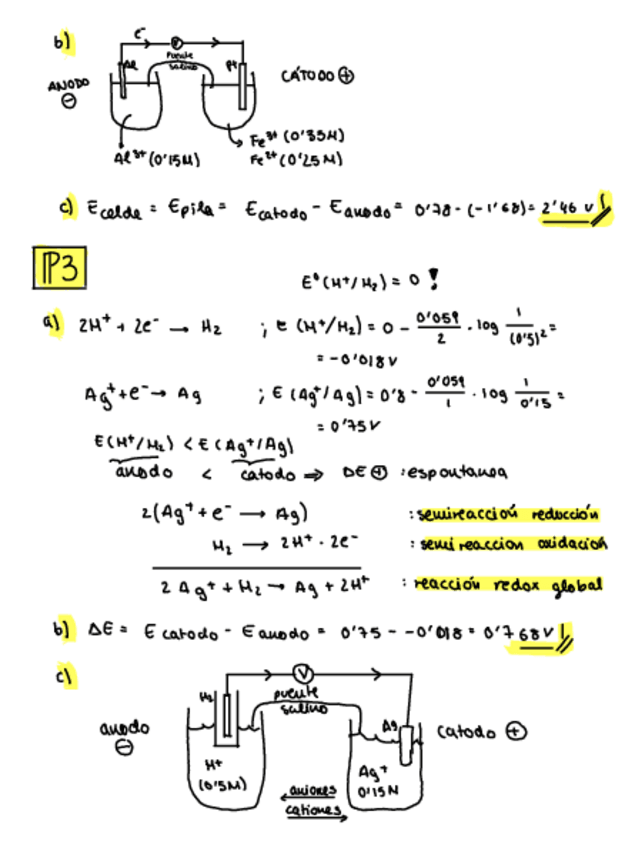 b) e⁻
Al puente salino Pt
ANODO ⊖ V CÁTODO ⊕
Al³⁺ (0'15M) Fe³⁺ (0'35M)
Fe²⁺ (0'25M)
c) Ecelda = Epila = Ecatodo - Eanodo = 0'78 - (-1'68) = 2'46 V
P3
E⁰ (H⁺/H₂) = 0 !
a) 2H⁺ + 2e⁻ → H₂ ; E (H⁺/H₂) = 0 - 0'059/2 · log 1/(0'5)² =
= -0'018V
Ag⁺ + e⁻ → Ag ; E (Ag⁺/Ag) = 0'8 - 0'059/1 · log 1/0'15 =
= 0'75V
E(H⁺/H₂) < E(Ag⁺/Ag)
anodo < catodo ⇒ ΔE ⊕ : espontanea
2(Ag⁺ + e⁻ → Ag) : semireacción reducción
H₂ → 2H⁺ · 2e⁻ : semireaccion oxidación
2 Ag⁺ + H₂ → Ag + 2H⁺ : reacción redox global
b) ΔE = Ecatodo - Eanodo = 0'75 - -0'018 = 0'768V
c) V
H₂ puente salino Ag
anodo ⊖ catodo ⊕
H⁺ (0'5M) Ag⁺ 0'15M
aniones
cationes